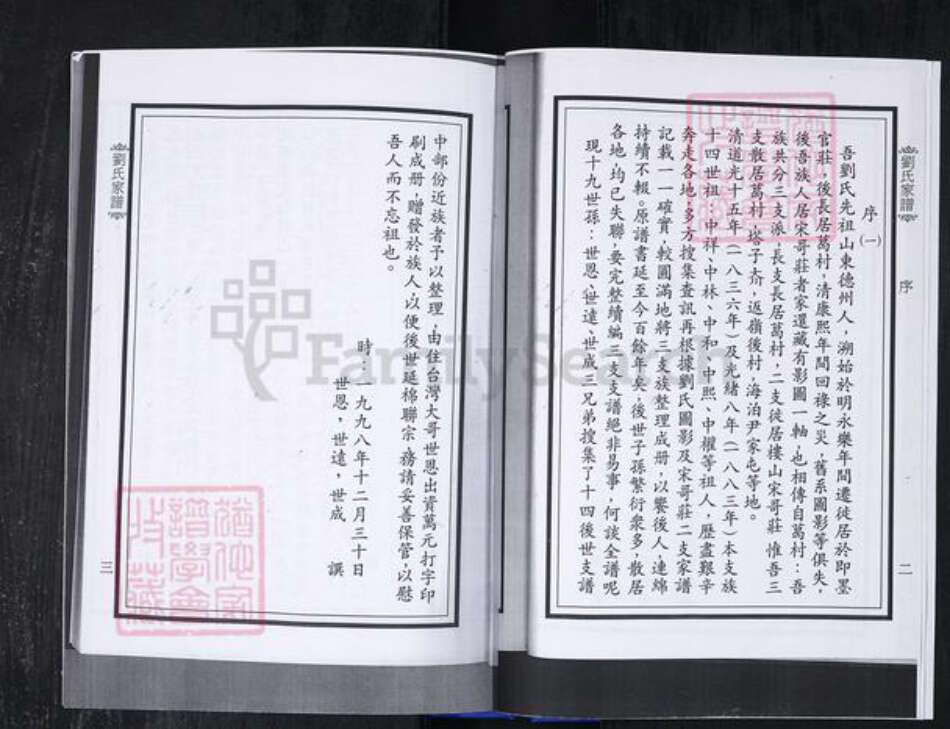 劉氏家譜
序
二
序(一)
吾劉氏先祖山東德州人，溯始於明永樂年間遷徙居於即墨
官莊，後長居萬村，清康熙年間回祿之災，舊系圖影等俱失，
後吾族人居宋哥莊者家還藏有影圖一軸，也相傳自萬村：吾
族共分三支派，長支長居萬村，二支徙居樓山宋哥莊，惟吾三
支散居萬村，塔子夼，返嶺後村，海泊尹家屯等地。
清道光十五年（一八三六年）及光緒八年（一八八三年）本支族
十四世祖：中祥、中林、中和、中熙、中櫂等祖人，歷盡艱辛
奔走各地，多方搜集查訊再根據劉氏圖影及宋哥莊二支家譜
記載一一確實，較圓滿地將三支族整理成册，以饗後人，連綿
持續不輟。原譜書延至今百餘年矣，後世子孫繁衍衆多，散居
各地，均已失聯，要完整續編三支支譜絕非易事，何談全譜呢
現十九世孫：世恩、世遠、世成三兄弟搜集了十四後世支譜
劉氏家譜
三
中部份近族者予以整理，由住台灣大哥世恩出資萬元打字印
刷成册，贈發於族人，以便後世延棉聯宗，務請妥善保管，以慰
吾人而不忘祖也。
時：一九九八年十二月三十日
世恩，世遠，世成 譔
FamilySearch
猶他家譜學會收藏